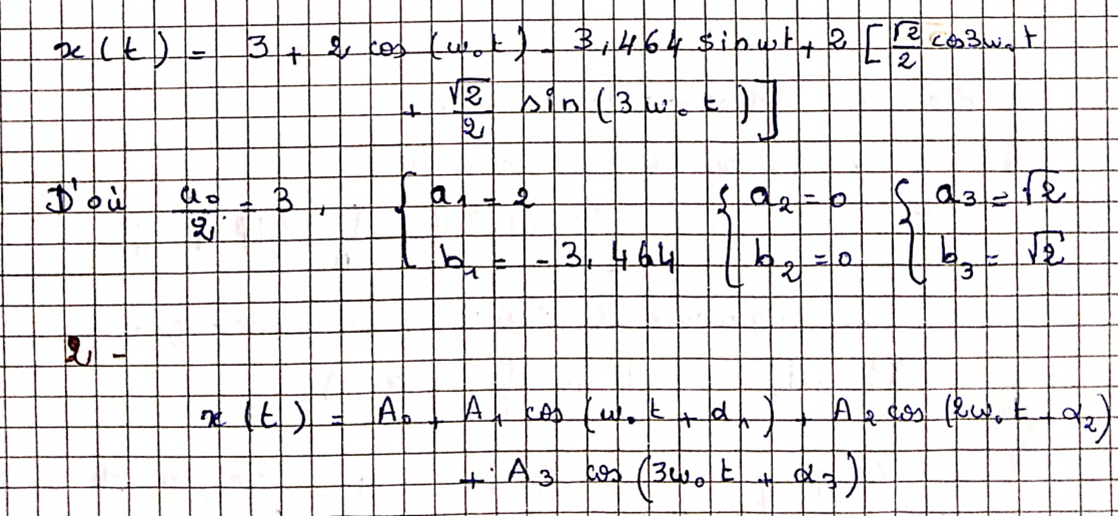 x(t) = 3 + 2 cos(ω₀t) - 3,464 sin ωt + 2 [√2/2 cos 3ω₀t
+ √2/2 sin(3ω₀t)]
D'où a₀/2 = 3, { a₁ = 2 { a₂ = 0 { a₃ = √2
b₁ = -3,464 b₂ = 0 b₃ = √2
2 -
x(t) = A₀ + A₁ cos(ω₀t + α₁) + A₂ cos(2ω₀t + α₂)
+ A₃ cos(3ω₀t + α₃)